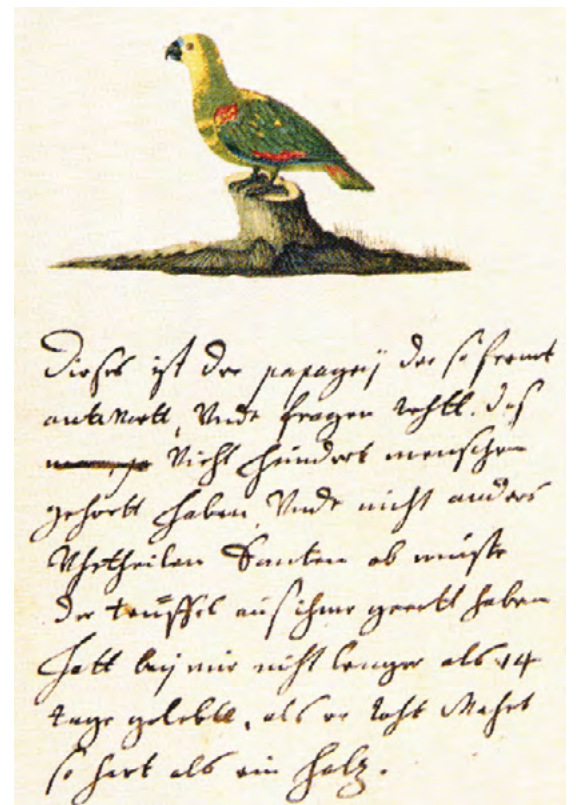 Dieses ist der papageij der so fremt
antwortt, Vnde fragen dehtt. das
Vicht hundert menschen
gehortt haben Vnde nicht anders
Vhrtheilen konten ob müste
der teüffel aus ihme gerett haben
hatt beij mir nicht lenger als 14
tage gelebtt, als er toht wahrt
so hart als ein holz.